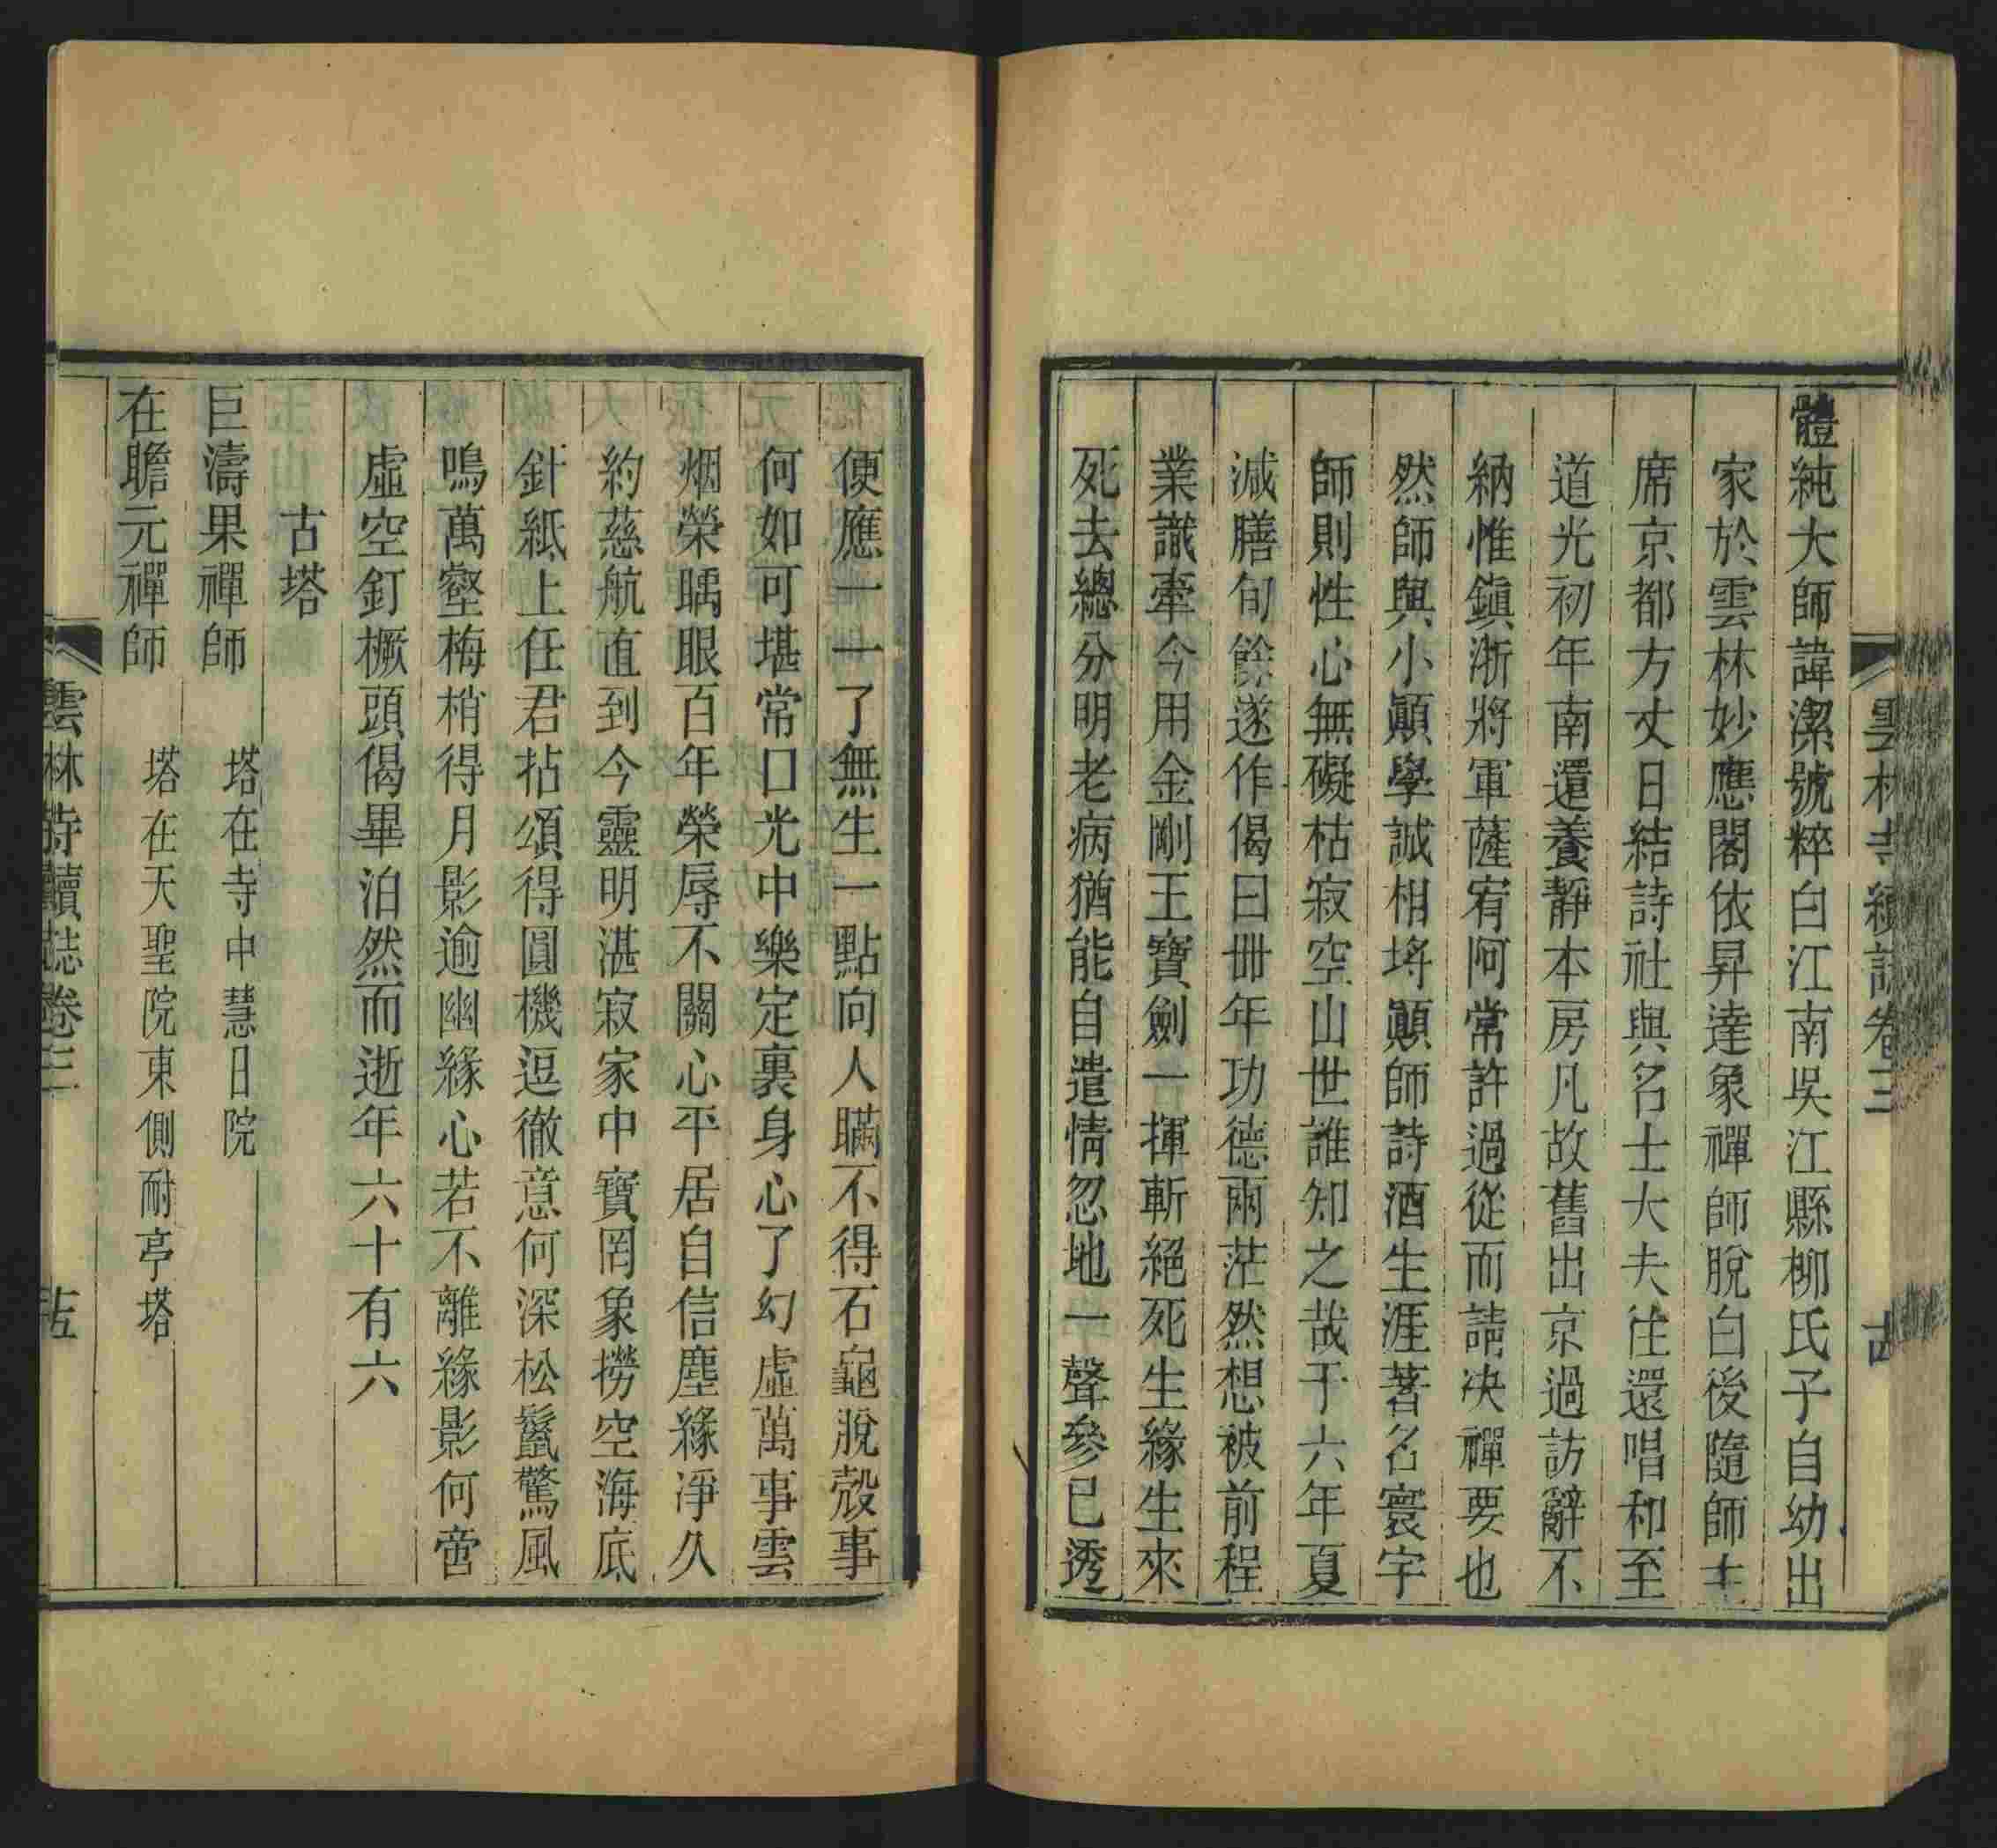 雲林寺續誌卷三
體純大師諱潔號粹白江南吳江縣柳氏子自幼出
家於雲林妙應閣依昇達象禪師脫白後隨師主
席京都方丈日結詩社與名士大夫往還唱和至
道光初年南還養靜本房凡故舊出京過訪辭不
納惟鎮浙將軍薩宥阿常許過從而請決禪要也
然師與小顚學誠相埒顚師詩酒生涯著名寰宇
師則性心無礙枯寂空山世誰知之哉于六年夏
減膳旬餘遂作偈曰冊年功德兩茫然想被前程
業識牽今用金剛王寶劍一揮斬絕死生緣生來
死去總分明老病猶能自遣情忽地一聲參已透
便應一一了無生一點向人瞞不得石龜脫殼事
何如可堪常口光中樂定裏身心了幻虛萬事雲
烟榮瞩眼百年榮辱不關心平居自信塵緣淨久
約慈航直到今靈明湛寂家中寶罔象撈空海底
針紙上任君拈頌得圓機逗徹意何深松鬣驚風
鳴萬壑梅梢得月影逾幽緣心若不離緣影何啻
虛空釘橛頭偈畢泊然而逝年六十有六
古塔
巨濤果禪師 塔在寺中慧日院
在瞻元禪師 塔在天聖院東側耐亭塔
雲林寺續誌卷三